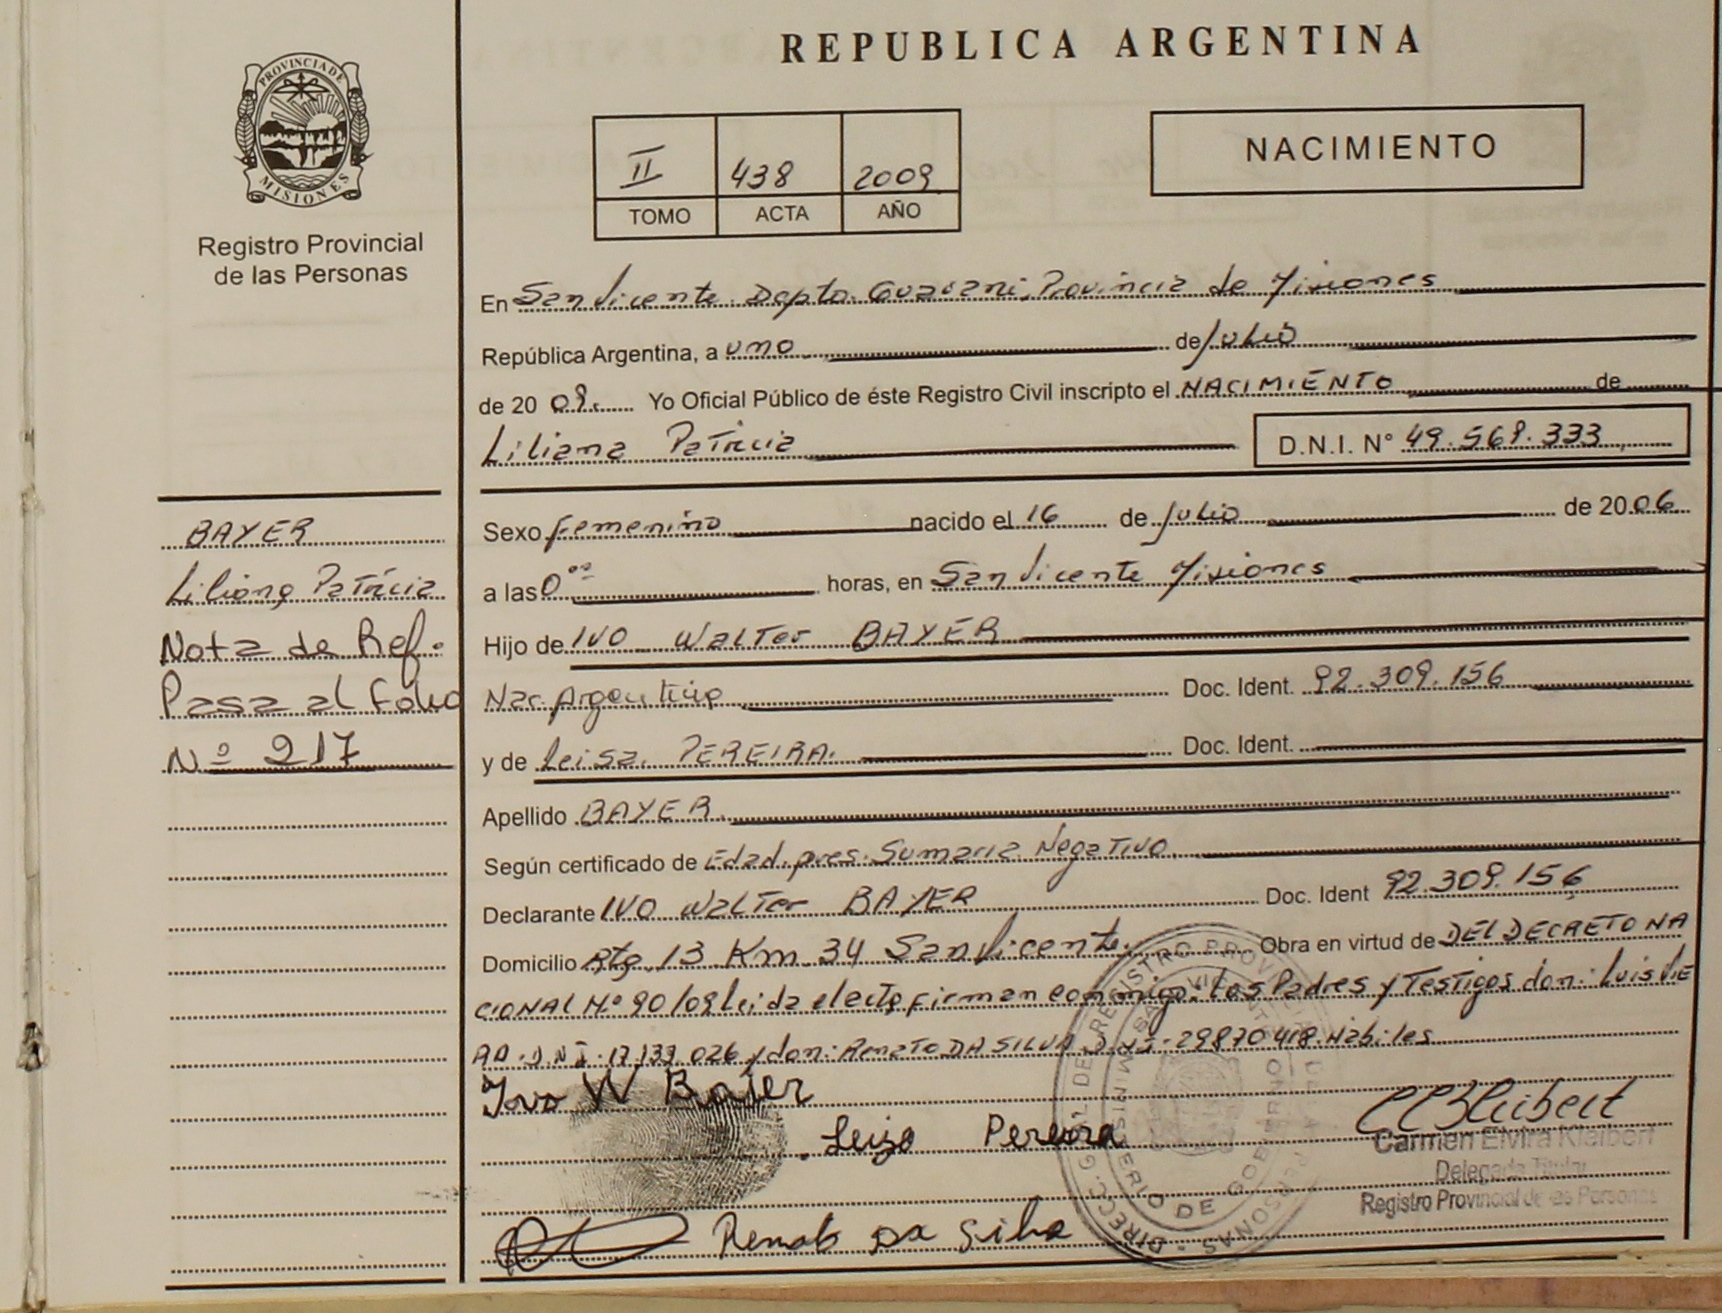 REPUBLICA ARGENTINA
PROVINCIA DE
MISIONES
Registro Provincial
de las Personas
II 438 2009
TOMO ACTA AÑO
NACIMIENTO
En San Vicente Depto. Guarani, Provincia de Misiones
República Argentina, a uno de Julio
de 20 09. Yo Oficial Público de éste Registro Civil inscripto el NACIMIENTO de
Liliana Patricia D.N.I. N° 49.569.333
BAYER
Liliana Patricia
Nota de Ref.
Pasa al Folio
Nº 217
Sexo femenino nacido el 16 de Julio de 20 06
a las 0 horas, en San Vicente Misiones
Hijo de IVO Walter BAYER
Nac. Argentino Doc. Ident. 92.309.156
y de Leisa PEREIRA. Doc. Ident.
Apellido BAYER
Según certificado de Edad. pres. Sumaria Negativo
Declarante IVO Walter BAYER Doc. Ident 92.309.156
Domicilio Rta 13 Km 34 San Vicente. Obra en virtud de DEL DECRETO NA
CIONAL Nº 90/09 Leida el acta firman conmigo: Los Padres y Testigos don: Luis VIE
RA. D.N.I. 17.139.026 y don: Renato DA SILVA D.N.I. 29870418. Habiles
Ivo W Baier
Leiza Pereira
Carmen Elvira Klaibert
Delegada Titular
Registro Provincial de las Personas
Renato Da Silva